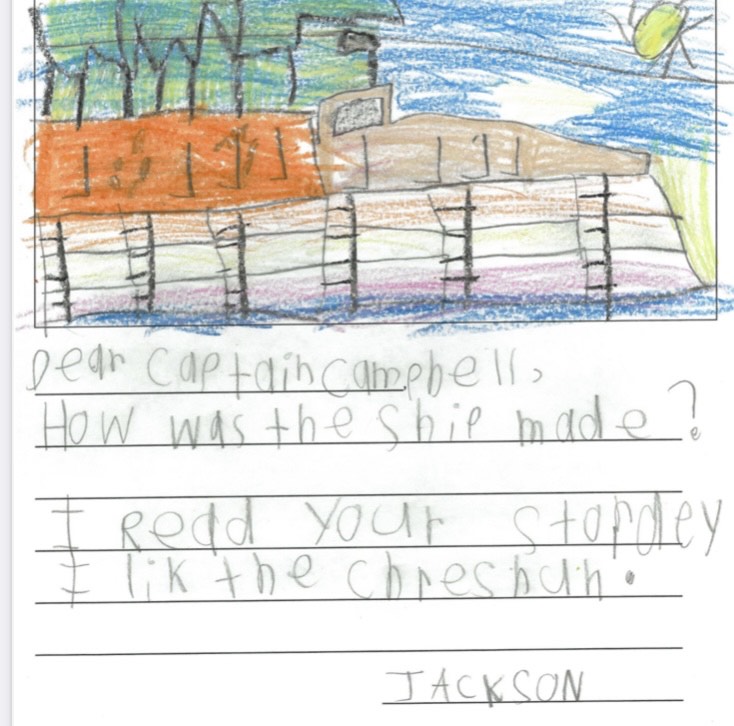 Dear Captain Campbell,
How was the ship made?
I Read your stordey
I lik the chreshuh.
JACKSON